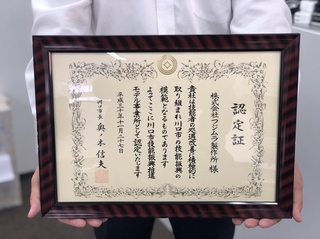 認定証
株式会社フジムラ製作所 様
貴社は技能者の処遇改善に積極的に
取り組まれ川口市の技能振興の
模範となるものであります
よってここに川口市技能振興推進
モデル事業所として認定いたします
平成三十年十一月二十七日
川口市長 奥ノ木信夫